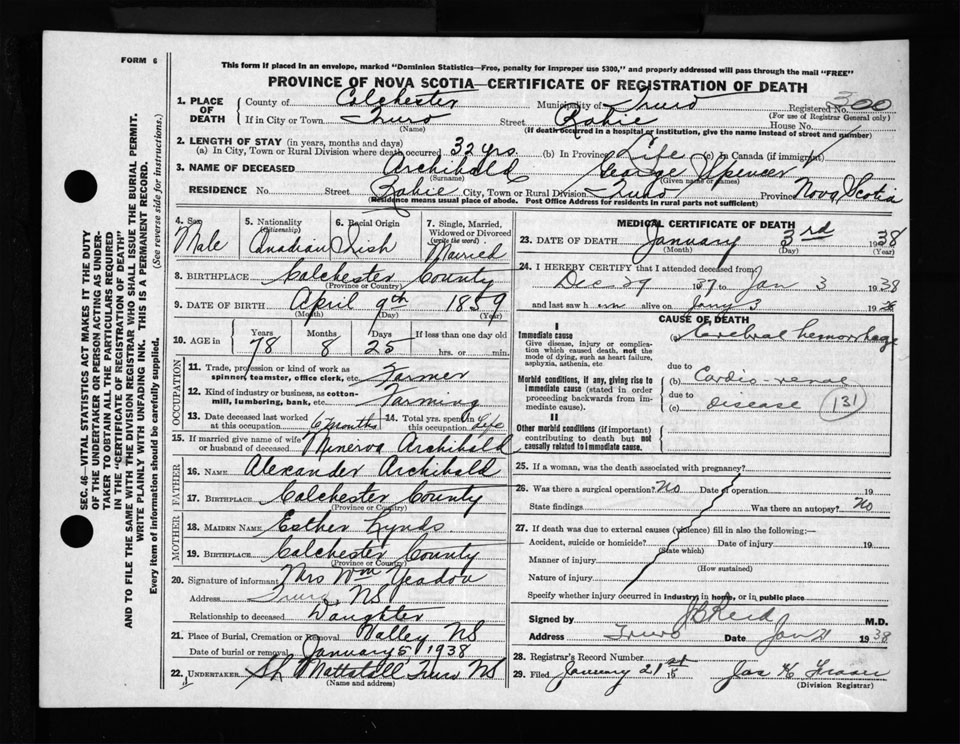 FORM 6
This form if placed in an envelope, marked "Dominion Statistics—Free, penalty for improper use $300," and properly addressed will pass through the mail "FREE"
PROVINCE OF NOVA SCOTIA—CERTIFICATE OF REGISTRATION OF DEATH
1. PLACE OF DEATH
County of Colchester Municipality of Truro Registered No. 300
(For use of Registrar General only)
If in City or Town Truro Street Robie House No.
(Name) (If death occurred in a hospital or institution, give the name instead of street and number)
2. LENGTH OF STAY (in years, months and days)
(a) In City, Town or Rural Division where death occurred 32 yrs. (b) In Province Life (c) In Canada (if immigrant)
3. NAME OF DECEASED Archibald George Spencer
(Surname) (Given name or names)
RESIDENCE No. Street Robie City, Town or Rural Division Truro Province Nova Scotia
(Residence means usual place of abode. Post Office Address for residents in rural parts not sufficient)
4. Sex Male
5. Nationality (Citizenship) Canadian
6. Racial Origin Irish
7. Single, Married, Widowed or Divorced (write the word) Married
8. BIRTHPLACE Colchester County
(Province or Country)
9. DATE OF BIRTH April 9th 1859
(Month) (Day) (Year)
10. AGE in Years 78 Months 8 Days 25 If less than one day old hrs. or min.
OCCUPATION
11. Trade, profession or kind of work as spinner, teamster, office clerk, etc. Farmer
12. Kind of industry or business, as cotton-mill, lumbering, bank, etc. Farming
13. Date deceased last worked at this occupation 6 months
14. Total yrs. spent in this occupation Life
15. If married give name of wife or husband of deceased Minerva Archibald
FATHER
16. NAME Alexander Archibald
17. BIRTHPLACE Colchester County
(Province or Country)
MOTHER
18. MAIDEN NAME Esther Kynds
19. BIRTHPLACE Colchester County
(Province or Country)
20. Signature of informant Mrs Wm Yeadon
Address Truro, NS
Relationship to deceased Daughter
21. Place of Burial, Cremation or Removal Valley NS
Date of burial or removal January 5, 1938
22. UNDERTAKER Mattatall, Truro NS
(Name and address)
MEDICAL CERTIFICATE OF DEATH
23. DATE OF DEATH January 3rd 1938
(Month) (Day) (Year)
24. I HEREBY CERTIFY that I attended deceased from
Dec 29 1937 to Jan 3 1938
and last saw him alive on Jany 3 19
CAUSE OF DEATH
I
Immediate cause
Give disease, injury or complication which caused death, not the mode of dying, such as heart failure, asphyxia, asthenia, etc
(a) Cerebral hemorrhage
due to
Morbid conditions, if any, giving rise to immediate cause (stated in order proceeding backwards from immediate cause).
(b) Cardio-renal
due to
(c) disease 131
II
Other morbid conditions (if important) contributing to death but not causally related to immediate cause.
25. If a woman, was the death associated with pregnancy?
26. Was there a surgical operation? No Date of operation 19
State findings Was there an autopsy? No
27. If death was due to external causes (violence) fill in also the following:—
Accident, suicide or homicide? Date of injury 19
(State which)
Manner of injury
(How sustained)
Nature of injury
Specify whether injury occurred in industry, in home, or in public place
Signed by Reid M.D.
Address Truro Date Jan 21 1938
28. Registrar's Record Number
29. Filed January 21st 19 Jas K Fraser
(Division Registrar)
SEC. 46—VITAL STATISTICS ACT MAKES IT THE DUTY
OF THE UNDERTAKER OR PERSON ACTING AS UNDER-
TAKER TO OBTAIN ALL THE PARTICULARS REQUIRED
IN THE "CERTIFICATE OF REGISTRATION OF DEATH"
AND TO FILE THE SAME WITH THE DIVISION REGISTRAR WHO SHALL ISSUE THE BURIAL PERMIT.
WRITE PLAINLY WITH UNFADING INK. THIS IS A PERMANENT RECORD.
Every item of information should be carefully supplied. (See reverse side for instructions.)